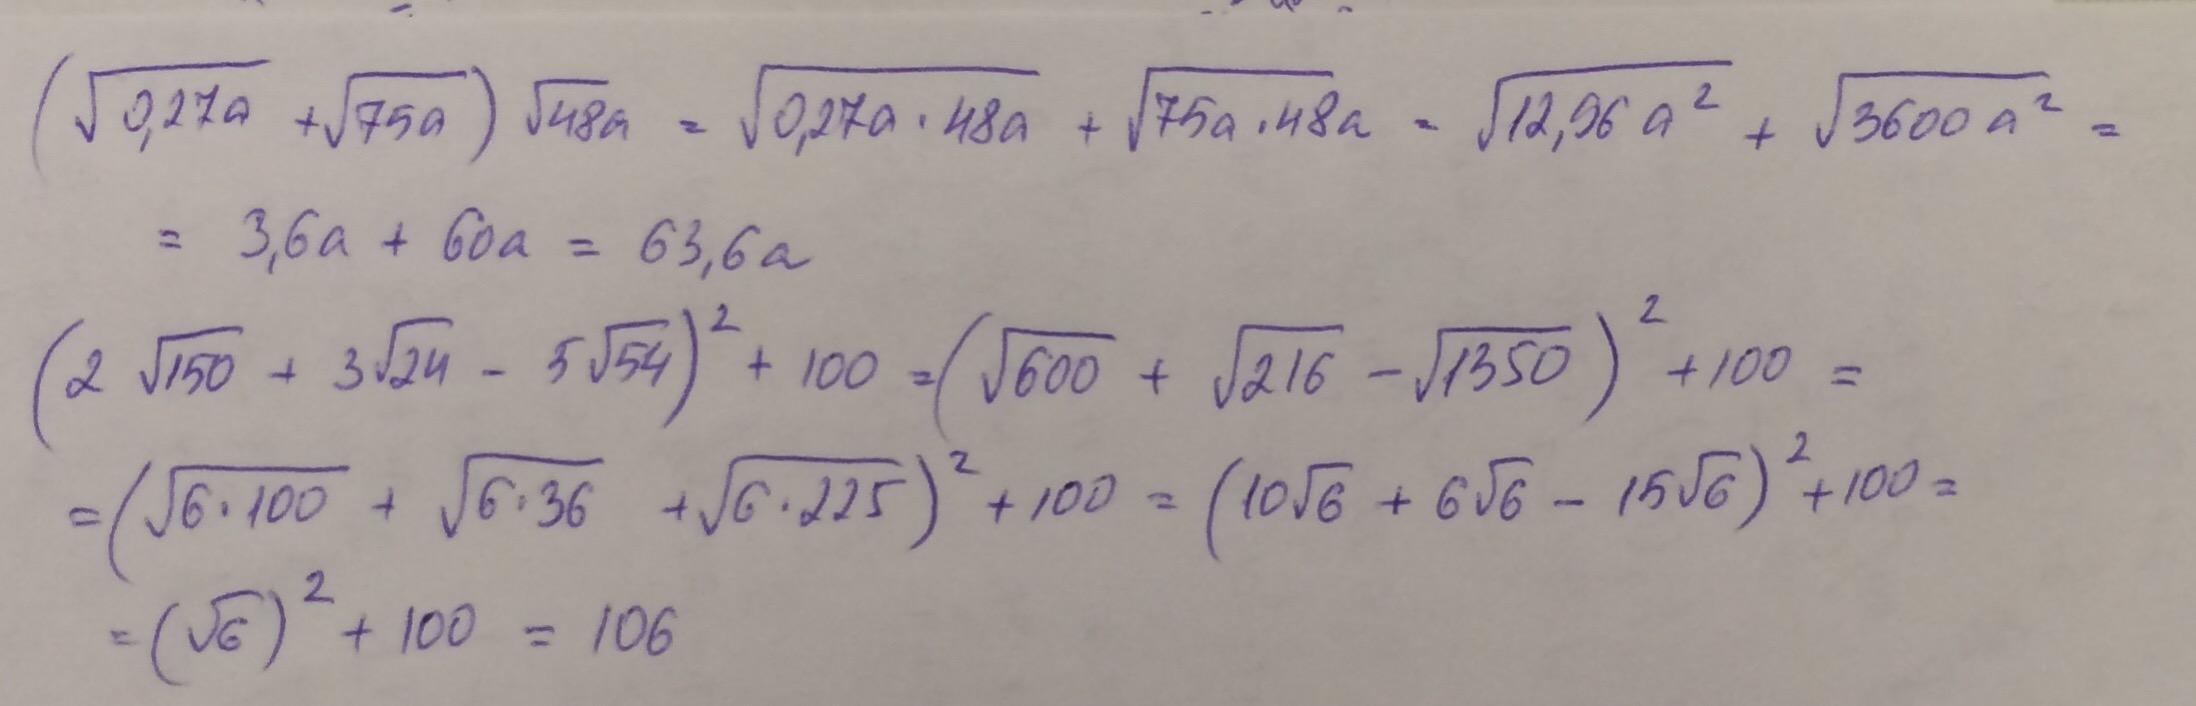 (√0,27a + √75a) √48a = √0,27a · 48a + √75a · 48a = √12,96 a² + √3600 a² =
= 3,6a + 60a = 63,6a
(2 √150 + 3√24 - 5√54)² + 100 = (√600 + √216 - √1350)² + 100 =
= (√6·100 + √6·36 + √6·225)² + 100 = (10√6 + 6√6 - 15√6)² + 100 =
= (√6)² + 100 = 106